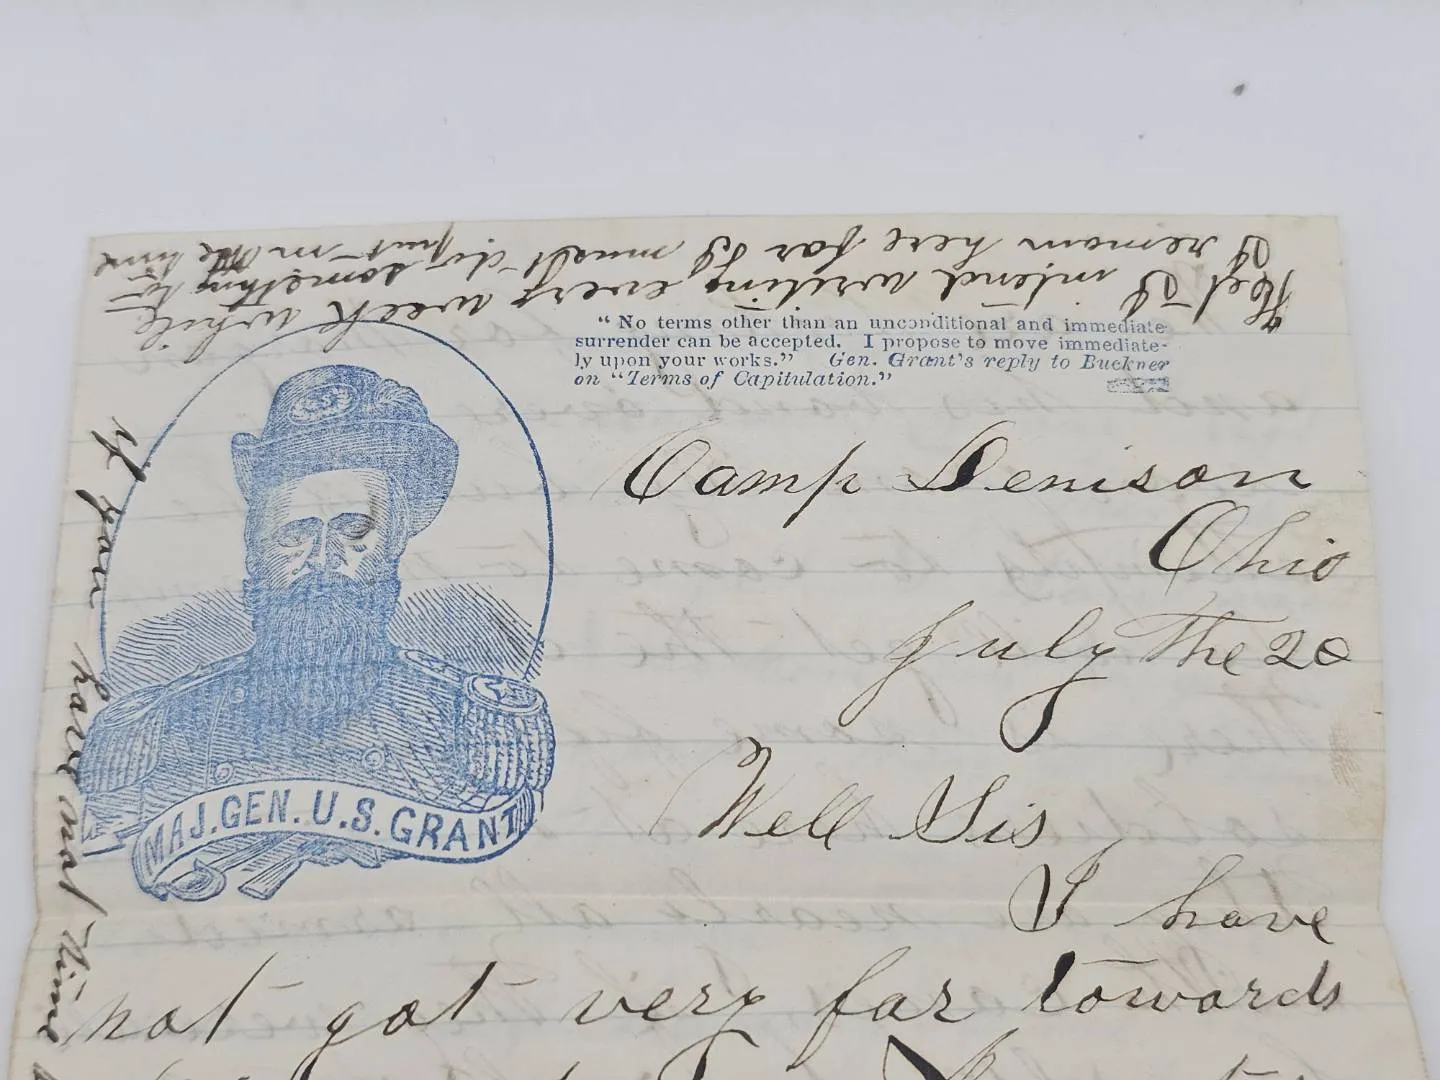 "No terms other than an unconditional and immediate
surrender can be accepted. I propose to move immediate-
ly upon your works." Gen. Grant's reply to Buckner
on "Terms of Capitulation."
MAJ. GEN. U.S. GRANT
Camp Denison
Ohio
July The 20
Well Sis
I have
not got very far towards
if you have not time
I intend writing every week while
I remain here for I must
something to